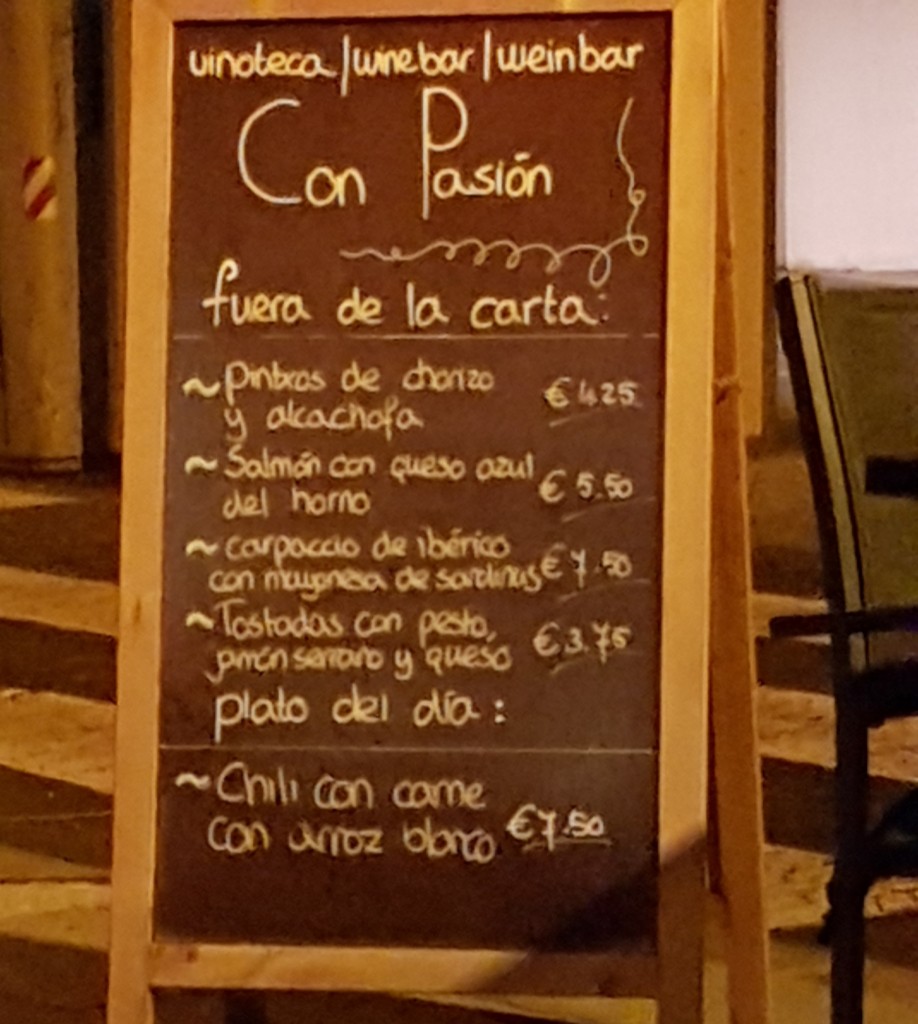 vinoteca / winebar / weinbar
Con Pasión
fuera de la carta:
~ Pintxos de chorizo € 4.25
y alcachofa
~ Salmón con queso azul € 5.50
del horno
~ carpaccio de ibérico € 7.50
con mayonesa de sardinas
~ Tostadas con pesto, € 3.75
jamón serrano y queso
plato del día:
~ Chili con carne € 7.50
con arroz blanco